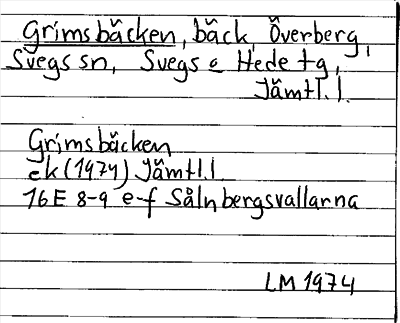 Grimsbäcken, bäck, Överberg,
Svegs sn, Svegs o Hede tg,
Jämtl. l.
Grimsbäcken
ek (1974) Jämtl. l
16E 8-9 e-f Sålnbergsvallarna
LM 1974